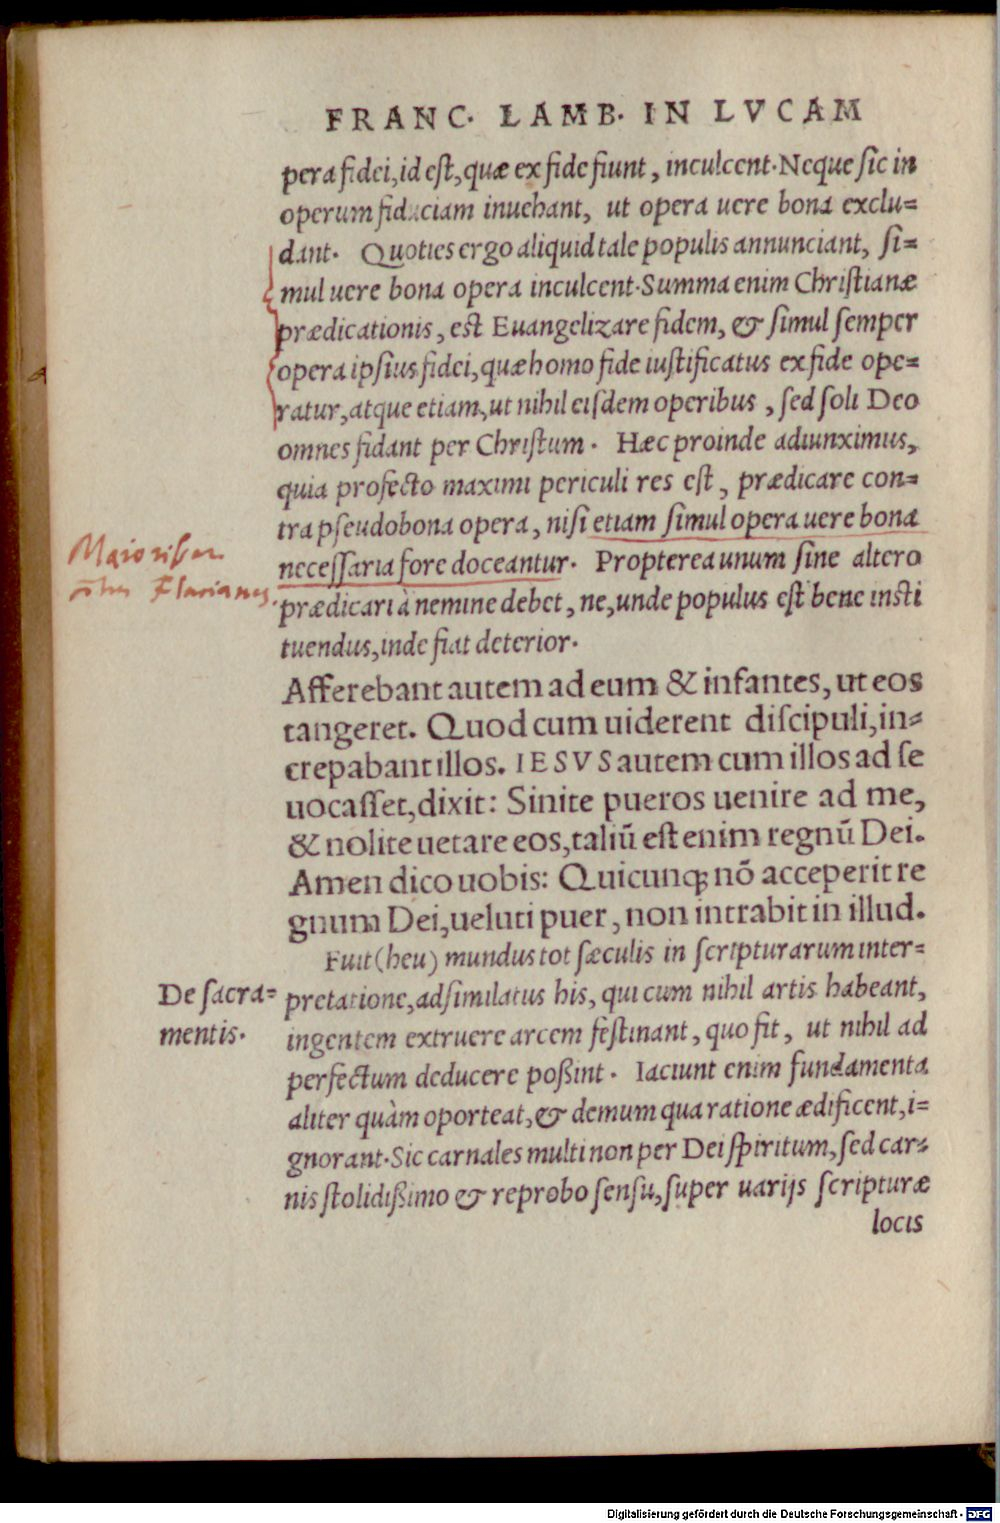 FRANC. LAMB. IN LVCAM
pera fidei, id est, quæ ex fide fiunt, inculcent. Neque sic in
operum fiduciam inuehant, ut opera uere bona exclu=
dant. Quoties ergo aliquid tale populis annunciant, si=
mul uere bona opera inculcent. Summa enim Christianæ
prædicationis, est Euangelizare fidem, & simul semper
opera ipsius fidei, quæ homo fide iustificatus ex fide ope=
ratur, atque etiam, ut nihil eisdem operibus, sed soli Deo
omnes fidant per Christum. Hæc proinde adiunximus,
quia profecto maximi periculi res est, prædicare con=
tra pseudobona opera, nisi etiam simul opera uere bona
necessaria fore doceantur. Propterea unum sine altero
prædicari à nemine debet, ne, unde populus est bene insti
tuendus, inde fiat deterior.
Afferebant autem ad eum & infantes, ut eos
tangeret. Quod cum uiderent discipuli, in=
crepabant illos. IESVS autem cum illos ad se
uocasset, dixit: Sinite pueros uenire ad me,
& nolite uetare eos, taliū est enim regnū Dei.
Amen dico uobis: Quicunqꝫ nō acceperit re
gnum Dei, ueluti puer, non intrabit in illud.
Fuit (heu) mundus tot sæculis in scripturarum inter=
De sacra=
mentis.
pretatione, adsimilatus his, qui cum nihil artis habeant,
ingentem extruere arcem festinant, quo fit, ut nihil ad
perfectum deducere poßint. Iaciunt enim fundamenta
aliter quàm oporteat, & demum qua ratione ædificent, i=
gnorant. Sic carnales multi non per Dei spiritum, sed car=
nis stolidißimo & reprobo sensu, super uarijs scripturæ
locis
Digitalisierung gefördert durch die Deutsche Forschungsgemeinschaft - DFG